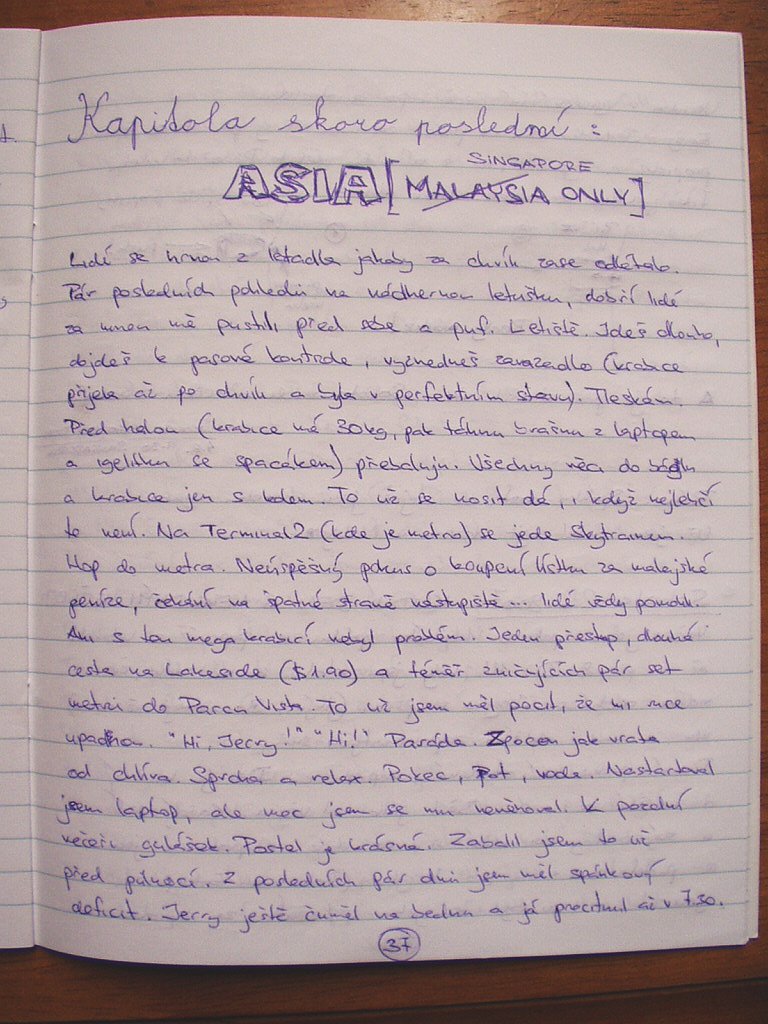 Kapitola skoro poslední:
SINGAPORE
ASIA [MALAYSIA ONLY]
Lidé se hrnou z letadla jakoby za chvíli zase odlétalo.
Pár posledních pohledů na nádhernou letušku, dobří lidé
za mnou mě pustili před sebe a puf. Letiště. Jdeš dlouho,
dojdeš k pasové kontrole, vyzvedneš zavazadlo (krabice
přijela až po chvíli a byla v perfektním stavu). Tleskám.
Před halou (krabice má 30kg, pak táhnu brašnu z laptopem
a igelitku se spacákem) přebaluju. Všechny věci do báglu
a krabice jen s kolem. To už se nosit dá, i když nejlehčí
to není. Na Terminal 2 (kde je metro) se jede Skytrainem.
Hop do metra. Neúspěšný pokus o koupení lístku za malajské
peníze, čekání na špatné straně nástupiště... lidé vždy pomohli.
Ani s tou mega krabicí nebyl problém. Jeden přestup, dlouhá
cesta na Lakeside ($1.90) a téměř zničujících pár set
metrů do Parcu Vista. To už jsem měl pocit, že mi ruce
upadnou. "Hi, Jerry!" "Hi!" Paráda. Zpocen jak vrata
od chlíva. Sprcha a relax. Pokec, pot, voda. Nastartoval
jsem laptop, ale moc jsem se mu nevěnoval. K pozdní
večeři gulášek. Postel je krásná. Zabalil jsem to už
před půlnocí. Z posledních pár dnů jsem měl spánkový
deficit. Jerry ještě čuměl na bednu a já procitnul až v 7.30.
37